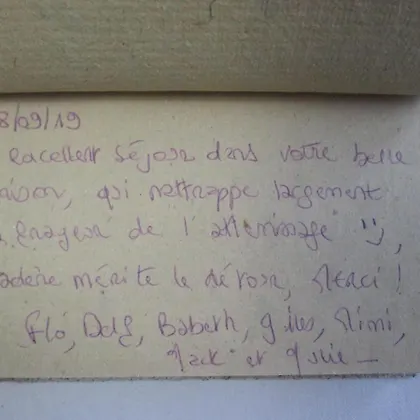 8/09/19
excellent séjour dans votre belle
aison, qui rattrappe largement
frayeur de l'atterrissage :),
adère mérite le détour, Merci !
Flo, Ddf, Babeth, Gilles, Mimi,
Jack et Josie